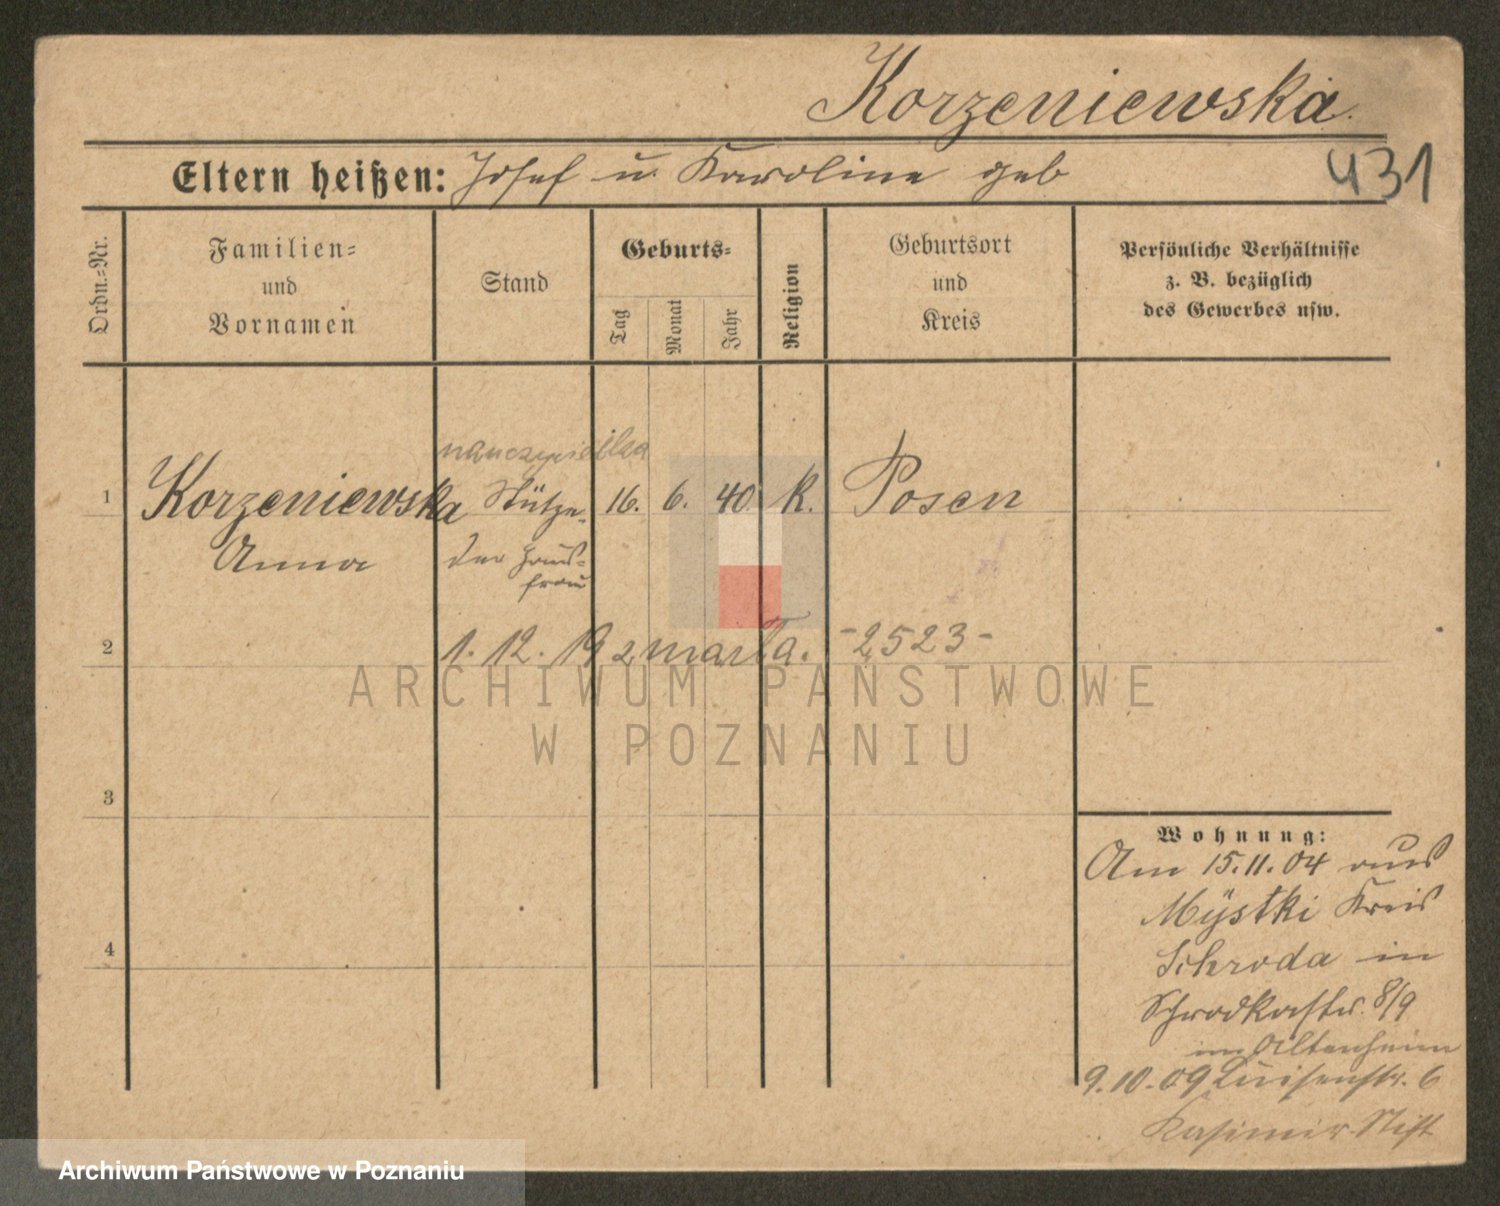 Korzeniewska.
Eltern heißen: Josef u. Karoline geb
431
Ordn.=Nr.
Familien=
und
Vornamen
Stand
Geburts=
Tag
Monat
Jahr
Religion
Geburtsort
und
Kreis
Persönliche Verhältnisse
z. B. bezüglich
des Gewerbes usw.
nauczycielka
1 Korzeniewska Stütze 16. 6. 40. k. Posen
Anna der Haus-
frau
2 1. 12. 19 zmarła. -2523-
3
4
Wohnung:
Am 15.11.04 aus
Mÿstki Kreis
Schroda in
Schrodkastr. 8/9
im Altenheim
9.10.09 Luisenstr. 6
Kasimir Stift
ARCHIWUM PAŃSTWOWE
W POZNANIU
Archiwum Państwowe w Poznaniu